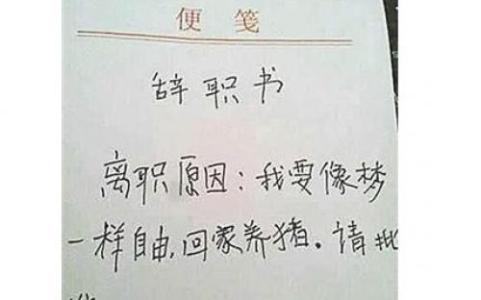 便笺
辞职书
离职原因:我要像梦
一样自由,回家养猪。请批